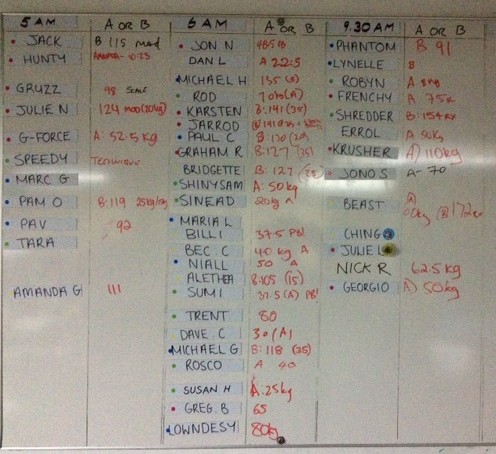 5 AM A OR B
JACK B 115 mod
HUNTY 10:23
GRUZZ 98 SCALE
JULIE N 124 mod (20kg)
G-FORCE A: 52.5 kg
SPEEDY TECHNIQUE
MARC G
PAM O B: 119
PAV 92
TARA
AMANDA G 111
6 AM A OR B
JON N
DAN L A 22.5
MICHAEL H 135
ROD
KARSTEN B: 141 (35)
JARROD
PAUL C B: 130
GRAHAM R B: 127
BRIDGETTE B: 127
SHINY SAM A: 50 kg
SINEAD 20 kg A
MARIA L
BILLI 37.5 PB!
BEC. C 40 kg A
NIALL 50 A
ALETHEA B: 105 (15)
SUMI 37.5 (A) PB!
TRENT 80
DAVE C 30 (A)
MICHAEL G B: 118 (35)
ROSCO A 40
SUSAN H A. 25kg
GREG. B 65
LOWNDESY 80kg
9.30 AM A OR B
PHANTOM B 91
LYNELLE
ROBYN A
FRENCHY A 75
SHREDDER B: 154 RX
ERROL A 50kg
KRUSHER A) 110kg
JONO S A- 70
BEAST
CHING
JULIE L
NICK R 62.5 kg
GEORGIO A) 50kg